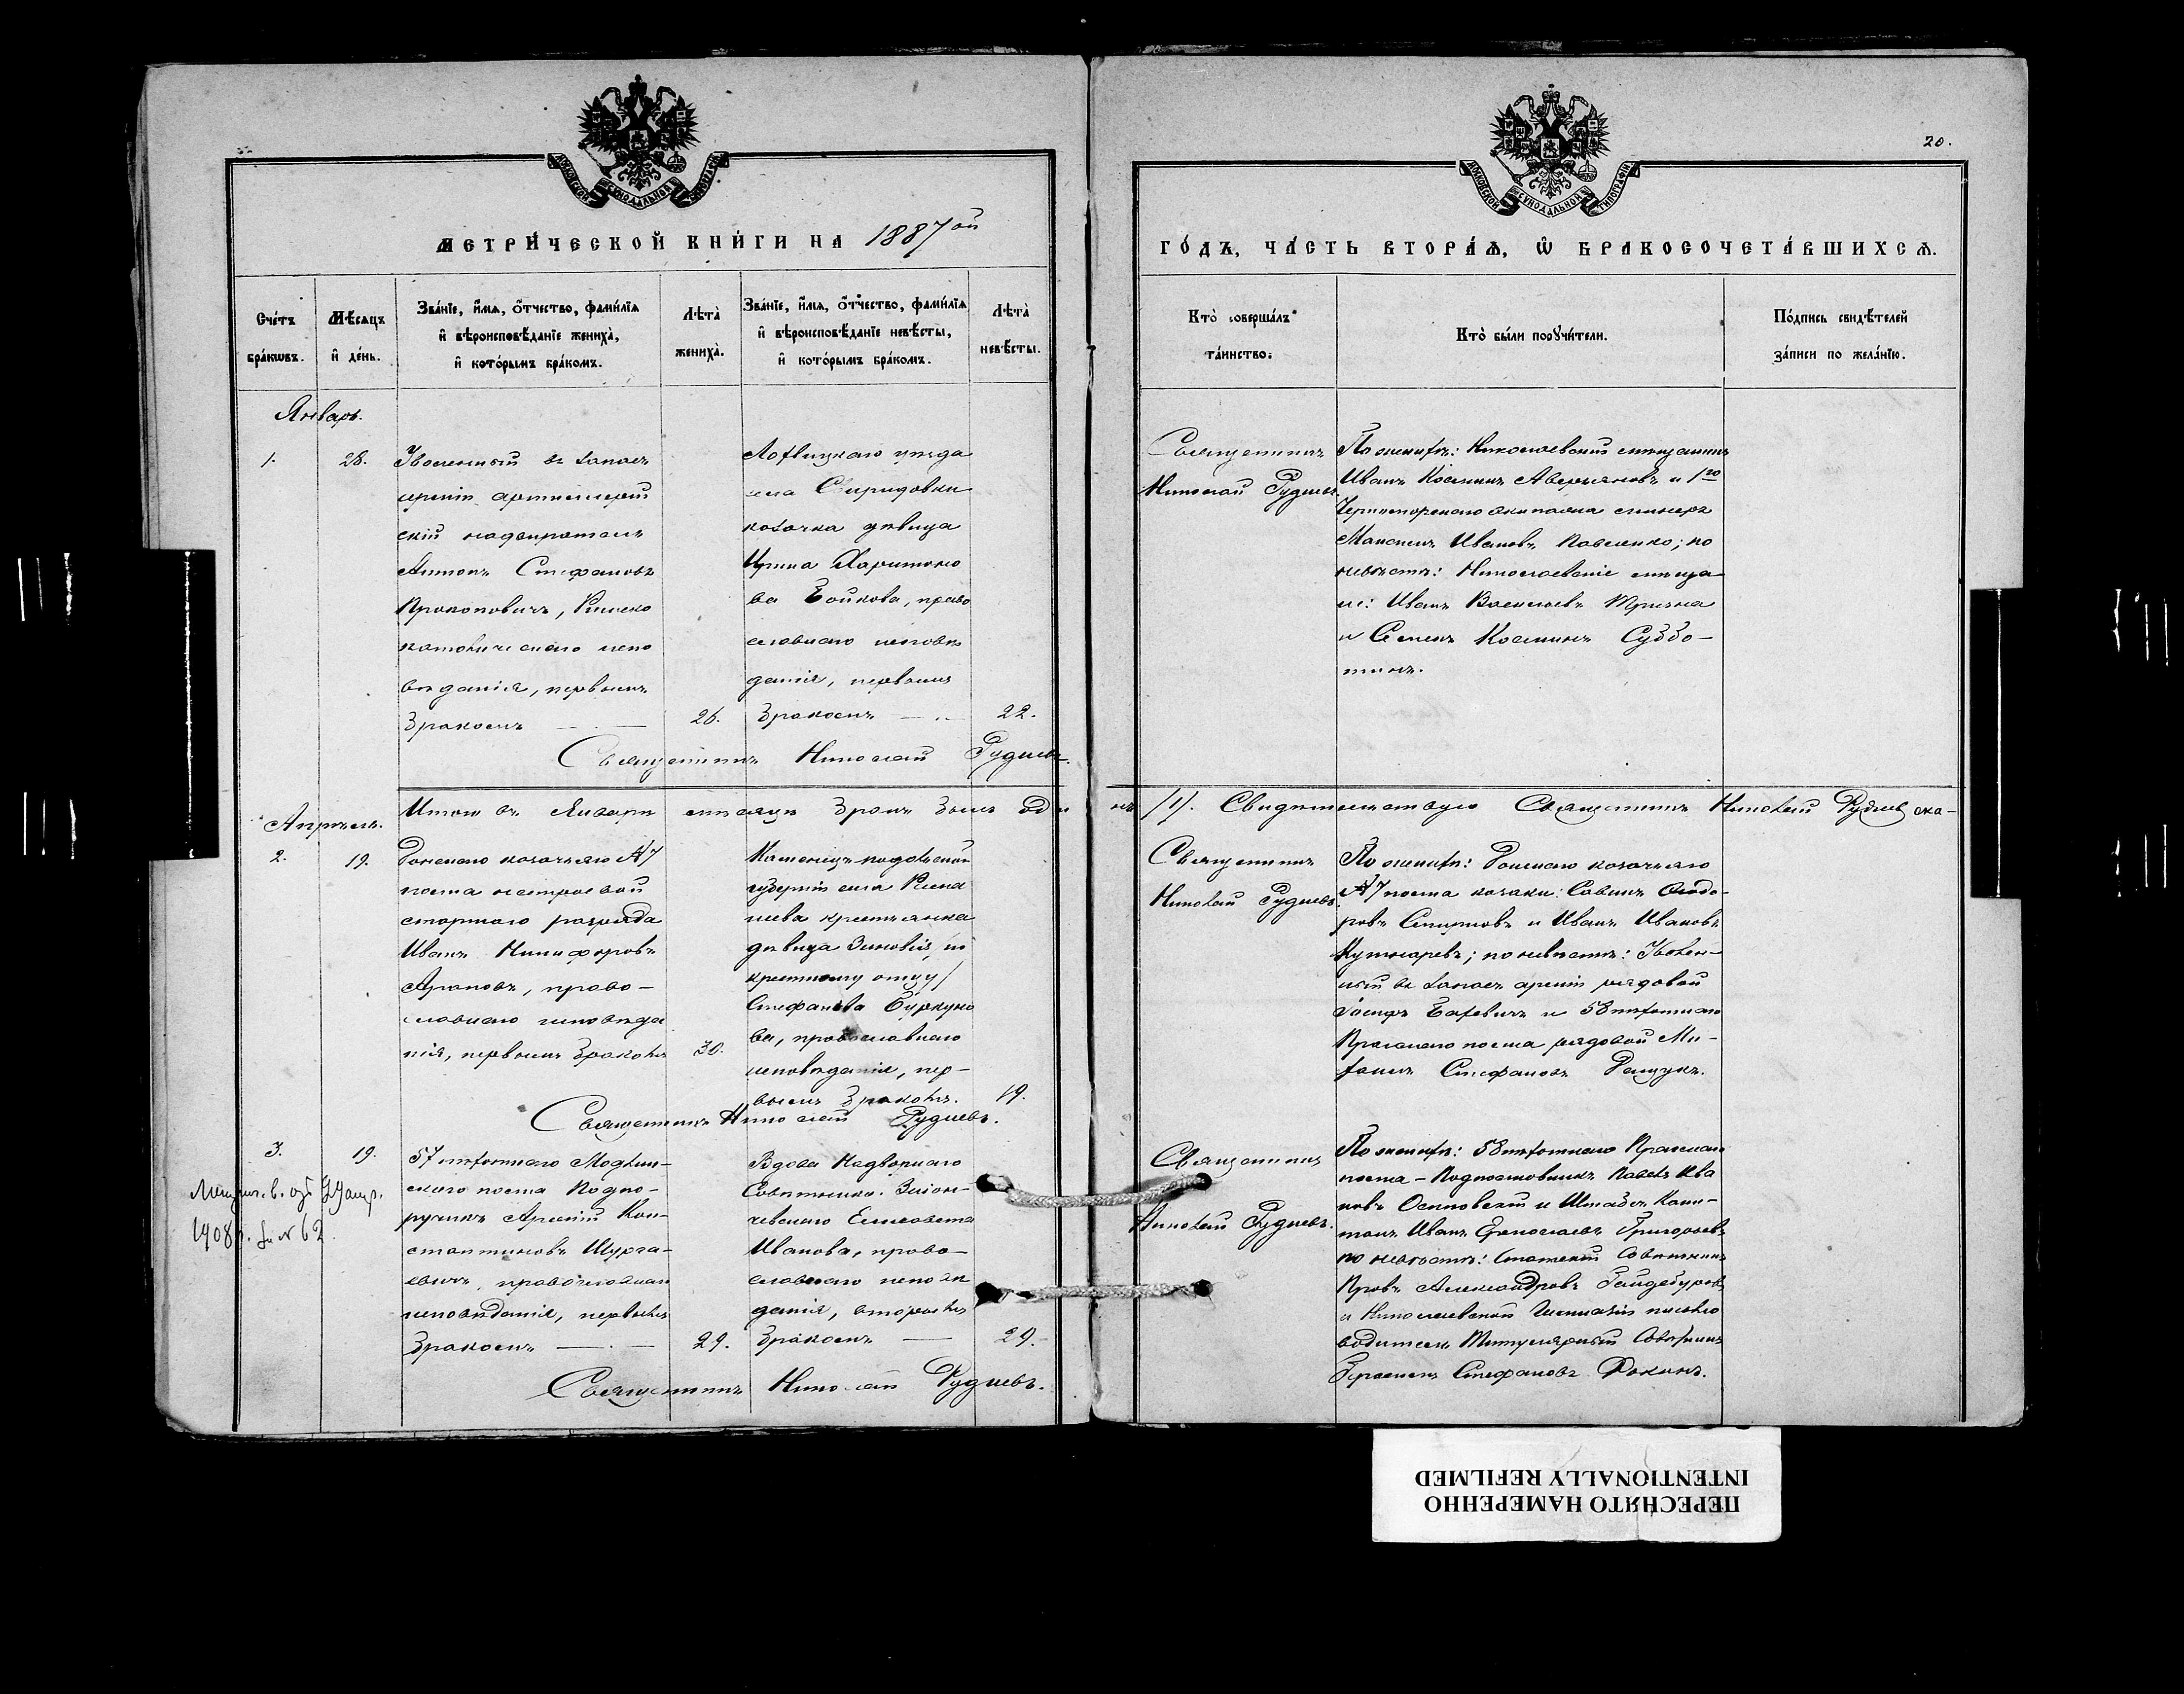 20.
МОСКОВСКОЙ СУНОДАЛЬНОЙ ТИПОГРАФІИ
МЕТРИ́ЧЕСКОЙ КНИ́ГИ НА 1887ой
Сче́тъ бра́кѡвъ.
Мѣсяцъ и҆ де́нь.
Зва́нїе, и҆́мѧ, ѻ҆́тчество, фами́лїѧ
и҆ вѣроисповѣ́данїе жениха̀,
и҆ кото́рымъ бра́комъ.
Лѣта̀ жениха̀.
Зва́нїе, и҆́мѧ, ѻ҆́тчество, фами́лїѧ
и҆ вѣроисповѣ́данїе невѣ́сты,
и҆ кото́рымъ бра́комъ.
Лѣта̀ невѣ́сты.
Январь.
1.
28.
Уволенный въ запасъ
арміи артиллерій
скій надзиратель
Антонъ Стефановъ
Прокоповичъ, Римско
католическаго испо
вѣданія, первымъ
бракомъ
26.
Лохвицкаго уѣзда
села Свиридовки
козачка дѣвица
Ирина Харитоно
ва Бойкова, право
славнаго исповѣ
данія, первымъ
бракомъ
22.
Священникъ Николай Рудневъ
Апрѣль.
Итого въ Январѣ мѣсяцѣ бракъ былъ оди
2.
19.
Донскаго казачьяго № 7
полка нестроевой
старшаго разряда
Иванъ Никифоровъ
Араповъ, право-
славнаго исповѣда
нія, первымъ бракомъ
30.
Каменецъ-подольской
губерніи села
крестьянка
дѣвица Зиновія, по
крестному отцу/
Стефанова
ва, православнаго
исповѣданія, пер-
вымъ бракомъ.
19.
Священникъ Николай Рудневъ.
3.
19.
57 пѣхотнаго Модлин-
скаго полка Подпо-
ручикъ Арсеній Кон-
стантиновъ
православнаго
исповѣданія, первымъ
бракомъ
29.
Вдова Надворнаго
Совѣтника
Елисавета
Иванова, право-
славнаго исповѣ
данія, вторымъ
бракомъ
29.
Священникъ Николай Рудневъ.
1908 г. за № 62
МОСКОВСКОЙ СУНОДАЛЬНОЙ ТИПОГРАФІИ
ГО́ДЪ, ЧА́СТЬ ВТОРА́Ѧ, Ѡ҆ БРАКОСОЧЕТА́ВШИХСѦ.
Кто̀ соверша́лъ та́инство.
Кто̀ бы́ли порꙋчи́тели.
По́дпись свидѣ́телей
за́писи по жела́нїю.
Священникъ
Николай Рудневъ.
По женихѣ: Николаевскій мѣщанинъ
Иванъ Козминъ Аверьяновъ и 1го
Черноморскаго экипажа
Максимъ Ивановъ Павленко; по
невѣстѣ: Николаевскіе мѣща
не: Иванъ Васильевъ
и Семенъ Козминъ Суббо-
тинъ.
нъ /1/. Свидѣтельствую Священникъ Николай Рудневъ
Священникъ
Николай Рудневъ.
По женихѣ: Донскаго казачьяго
№ 7 полка казаки: Савинъ Ѳеодо-
ровъ Смирновъ и Иванъ Ивановъ
по невѣстѣ: Уволен-
ный въ запасъ арміи рядовой
Іосифъ и 58 пѣхотнаго
Прагскаго полка рядовой Ми-
хаилъ Стефановъ
Священникъ
Николай Рудневъ.
По женихѣ: 58 пѣхотнаго Прагскаго
полка - Подполковникъ Павелъ Ива
новъ Осиповскій и Штабсъ Капи-
танъ Иванъ Ермолаевъ Григорьевъ
по невѣстѣ: Статскій Совѣтникъ
Провъ Александровъ Гайдебуровъ
и Николаевской Гимназіи письмо
водитель Титулярный Совѣтникъ
Герасимъ Стефановъ Фокинъ.
ПЕРЕСНЯТО НАМЕРЕННО
INTENTIONALLY REFILMED